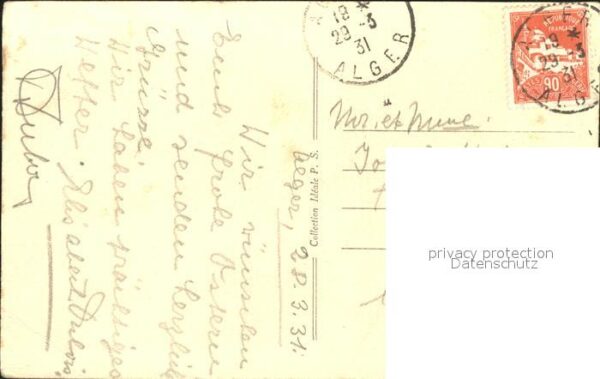 Alger, 28.3.31.
Wir wünschen
Euch frohe Ostern
und senden herzlich
Grüsse.
Wir haben prächtiges
Wetter. Elisabeth Dubois.
Dubois
Collection Idéale P. S.
ALGER
19
29 -3
31
ALGER
RÉPUBLIQUE
FRANÇAISE
90
19
29 -3
31
ALGER
Mr. et Mme.
privacy protection
Datenschutz